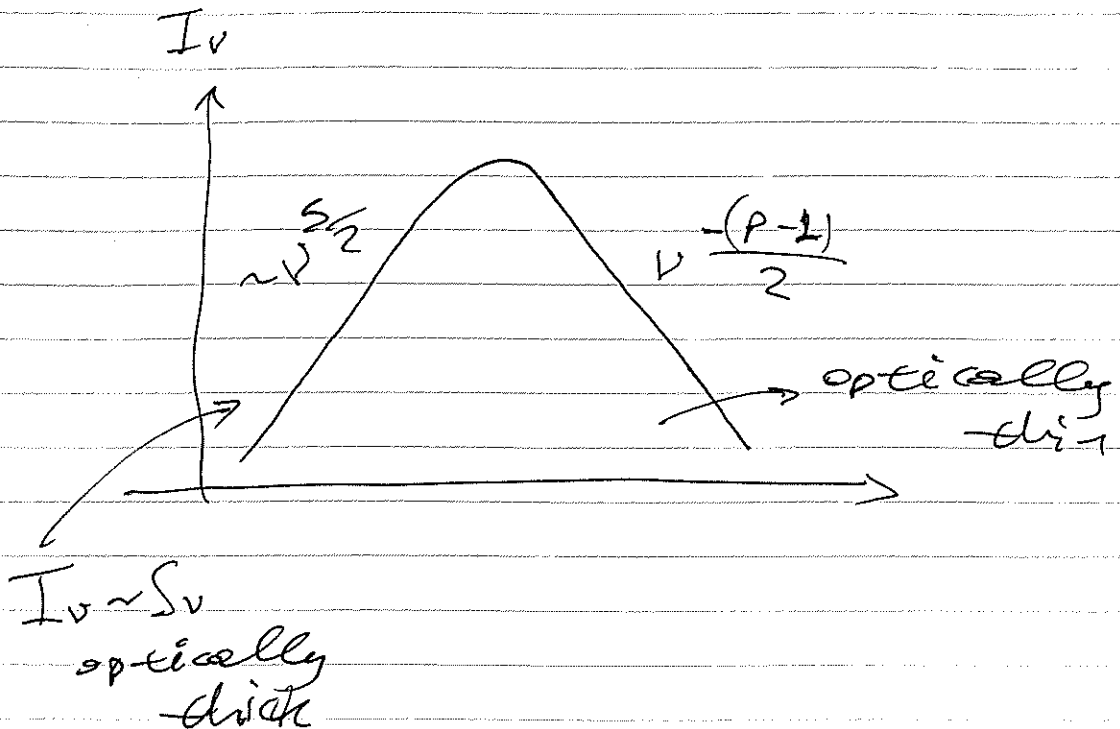 I_ν
~ν^{5/2}
ν^{-(p-1)/2}
optically
thin
I_ν ~ S_ν
optically
thick